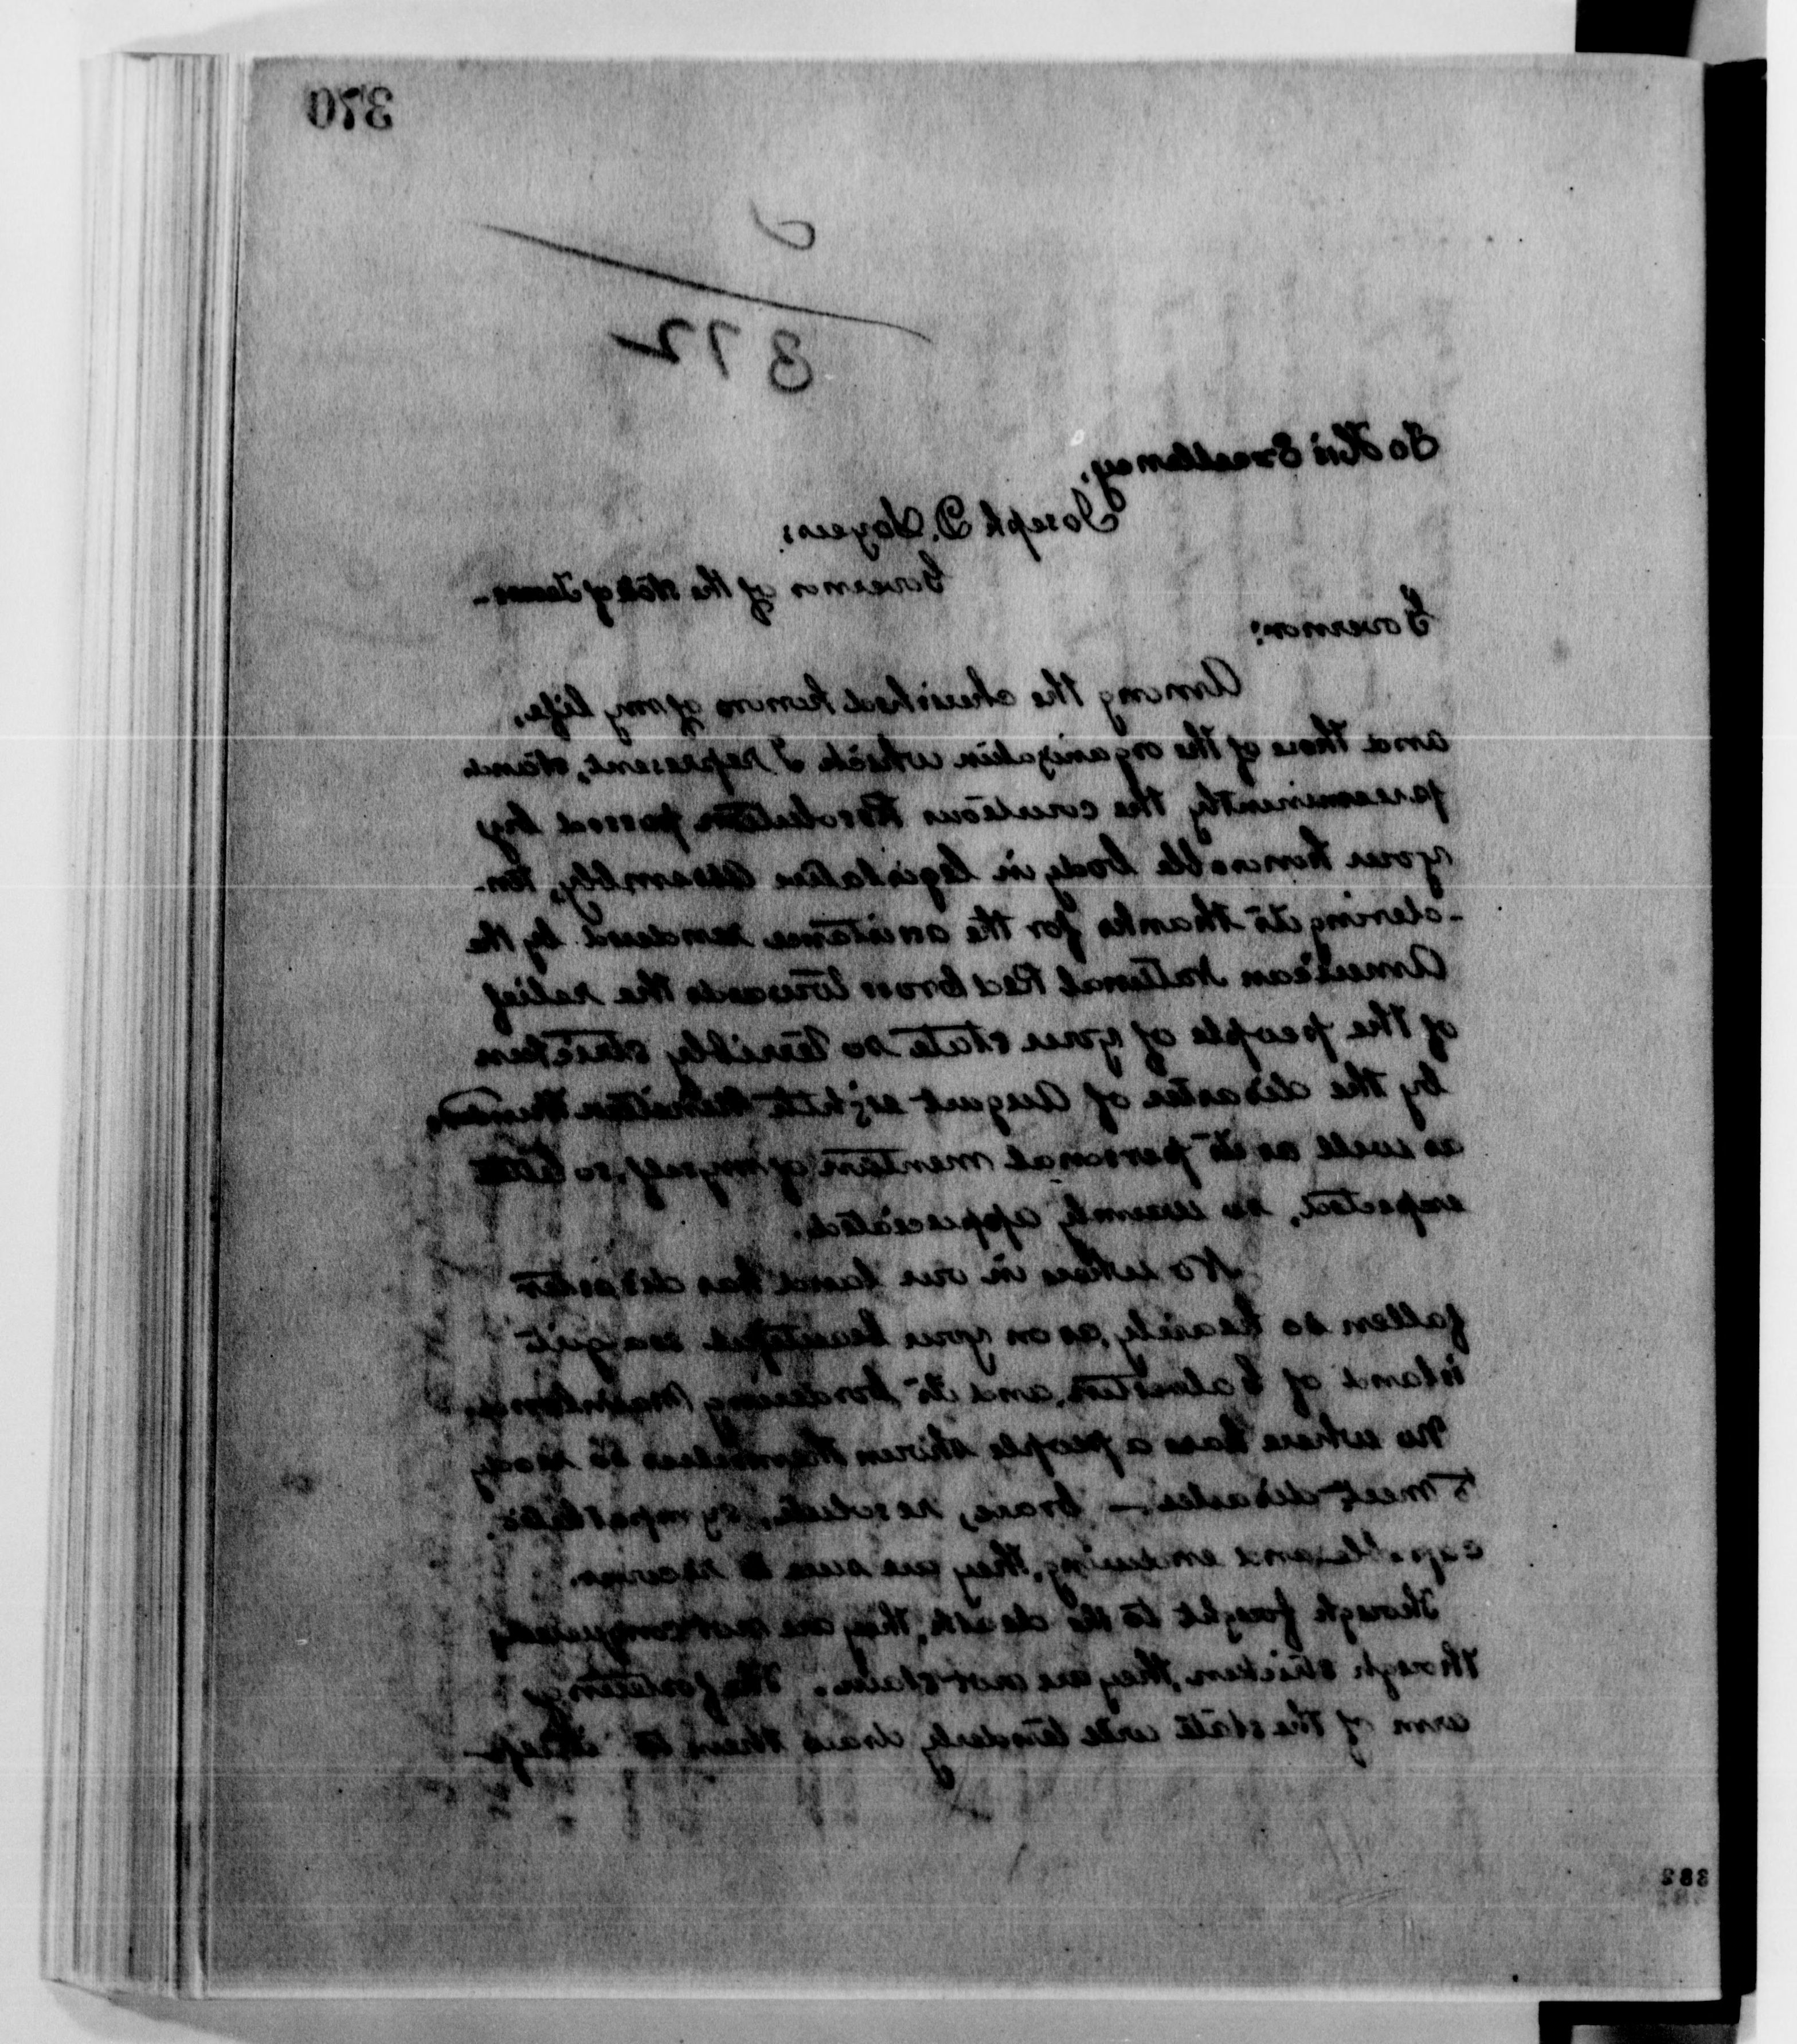 370
2
372
To His Excellency,
Joseph D. Sayers:
Governor of the State of Texas-
Governor:
Among the cherished honors of my life,
and those of the organization which I represent, stand
preeminently the courteous Resolution passed by
your honorable body in legislative assembly, ten-
-dering its thanks for the assistance rendered by the
American National Red Cross towards the relief
of the people of your state so terribly stricken
by the disaster of August eighth nineteen hundred,
as well as its personal mention of myself, so little
expected, so warmly appreciated.
No where in our land has disaster
fallen so heavily, as on your beautiful sea girt
island of Galveston, and its bordering mainland.
No where have a people shown themselves so ready
to meet disaster - brave, resolute, sympathetic,
capable and enduring, they are sure to recover.
Though fought to the death, they are not conquered,
though stricken, they are not slain. The fostering
arm of the state will tenderly draw them to its
382